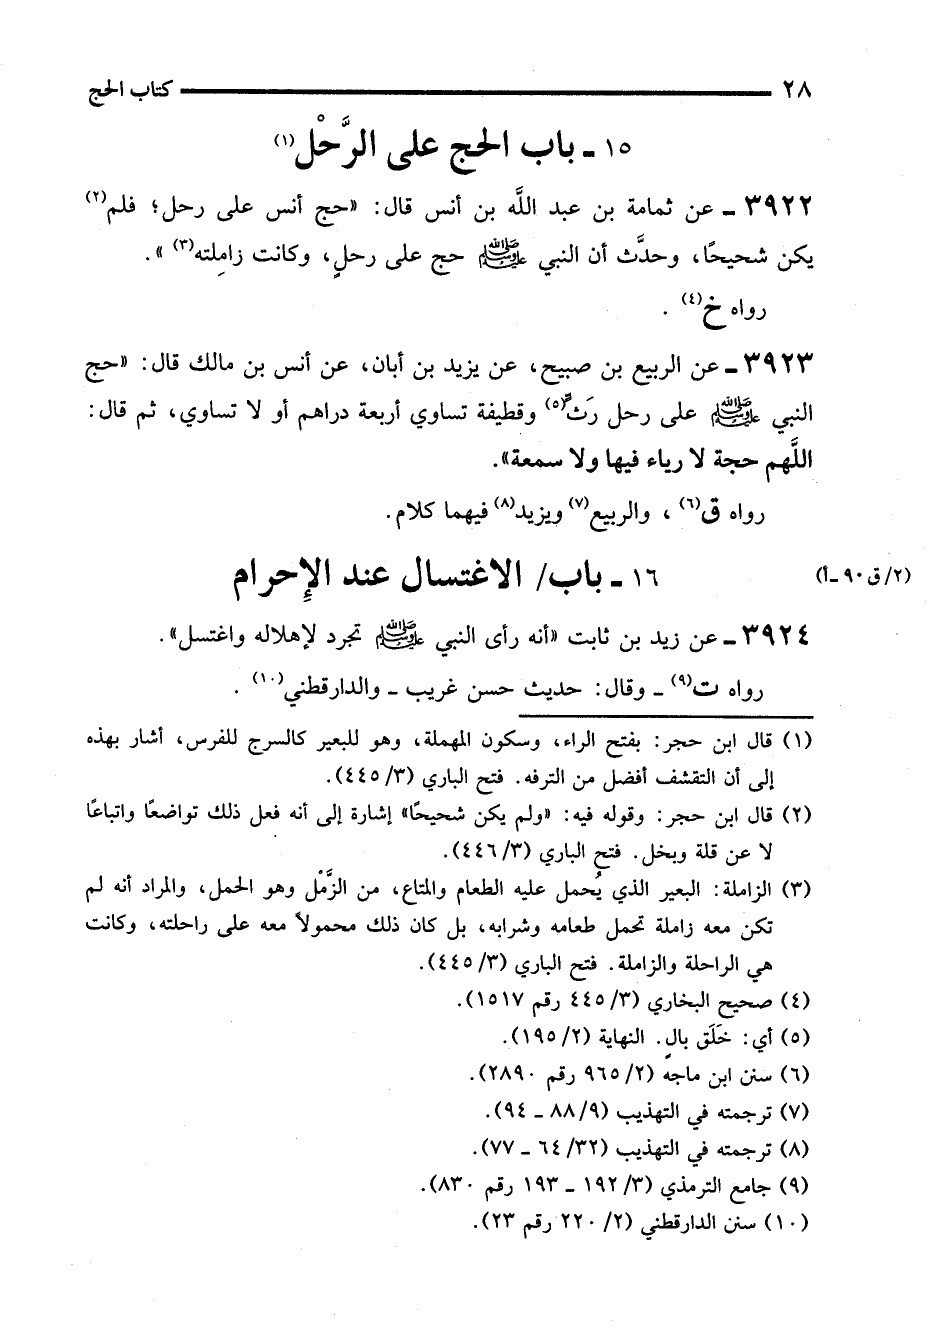 ٢٨ كتاب الحج
١٥ ـ باب الحج على الرَّحْل(١)
٣٩٢٢ ـ عن ثمامة بن عبد اللَّه بن أنس قال: «حج أنس على رحل؛ فلم(٢)
يكن شحيحًا، وحدَّث أن النبي ﷺ حج على رحلٍ، وكانت زاملته(٣)».
رواه خ(٤).
٣٩٢٣ ـ عن الربيع بن صبيح، عن يزيد بن أبان، عن أنس بن مالك قال: «حج
النبي ﷺ على رحل رَثٍّ(٥) وقطيفة تساوي أربعة دراهم أو لا تساوي، ثم قال:
اللَّهم حجة لا رياء فيها ولا سمعة».
رواه ق(٦)، والربيع(٧) ويزيد(٨) فيهما كلام.
١٦ ـ باب/ الاغتسال عند الإحرام (٢/ق٩٠ ـ أ)
٣٩٢٤ ـ عن زيد بن ثابت «أنه رأى النبي ﷺ تجرد لإهلاله واغتسل».
رواه ت(٩) ـ وقال: حديث حسن غريب ـ والدارقطني(١٠).
(١) قال ابن حجر: بفتح الراء، وسكون المهملة، وهو للبعير كالسرج للفرس، أشار بهذه
إلى أن التقشف أفضل من الترفه. فتح الباري (٣/ ٤٤٥).
(٢) قال ابن حجر: وقوله فيه: «ولم يكن شحيحًا» إشارة إلى أنه فعل ذلك تواضعًا واتباعًا
لا عن قلة وبخل. فتح الباري (٣/ ٤٤٦).
(٣) الزاملة: البعير الذي يُحمل عليه الطعام والمتاع، من الزَّمْل وهو الحمل، والمراد أنه لم
تكن معه زاملة تحمل طعامه وشرابه، بل كان ذلك محمولاً معه على راحلته، وكانت
هي الراحلة والزاملة. فتح الباري (٣/ ٤٤٥).
(٤) صحيح البخاري (٣/ ٤٤٥ رقم ١٥١٧).
(٥) أي: خَلَق بالٍ. النهاية (٢/ ١٩٥).
(٦) سنن ابن ماجه (٢/ ٩٦٥ رقم ٢٨٩٠).
(٧) ترجمته في التهذيب (٩/ ٨٨ ـ ٩٤).
(٨) ترجمته في التهذيب (٣٢/ ٦٤ ـ ٧٧).
(٩) جامع الترمذي (٣/ ١٩٢ ـ ١٩٣ رقم ٨٣٠).
(١٠) سنن الدارقطني (٢/ ٢٢٠ رقم ٢٣).